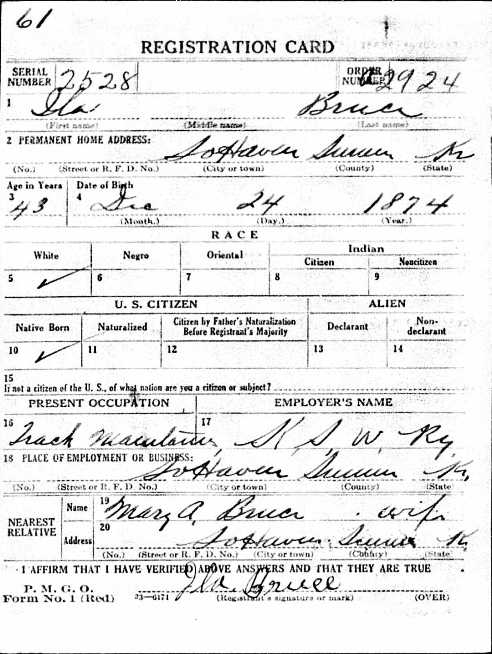 61
REGISTRATION CARD
SERIAL NUMBER 2528 ORDER NUMBER 2924
1 Ila Bruce
(First name) (Middle name) (Last name)
2 PERMANENT HOME ADDRESS: So Haven Sumner Ks
(No.) (Street or R. F. D. No.) (City or town) (County) (State)
Age in Years Date of Birth
3 43 4 Dec 24 1874
(Month.) (Day.) (Year.)
RACE
White Negro Oriental Indian
Citizen Noncitizen
5 ✓ 6 7 8 9
U. S. CITIZEN ALIEN
Native Born Naturalized Citizen by Father's Naturalization Before Registrant's Majority Declarant Non-declarant
10 ✓ 11 12 13 14
15
If not a citizen of the U. S., of what nation are you a citizen or subject?
PRESENT OCCUPATION EMPLOYER'S NAME
16 Track 17 K. S. W. Ry
18 PLACE OF EMPLOYMENT OR BUSINESS: So Haven Sumner Ks
(No.) (Street or R. F. D. No.) (City or town) (County) (State)
NEAREST RELATIVE Name 19 Mary A. Bruce wife
Address 20 So Haven Sumner K
(No.) (Street or R. F. D. No.) (City or town) (County) (State)
I AFFIRM THAT I HAVE VERIFIED ABOVE ANSWERS AND THAT THEY ARE TRUE
P. M. G. O.
Form No. 1 (Red) 03—6171 Ila Bruce
(Registrant's signature or mark) (OVER)